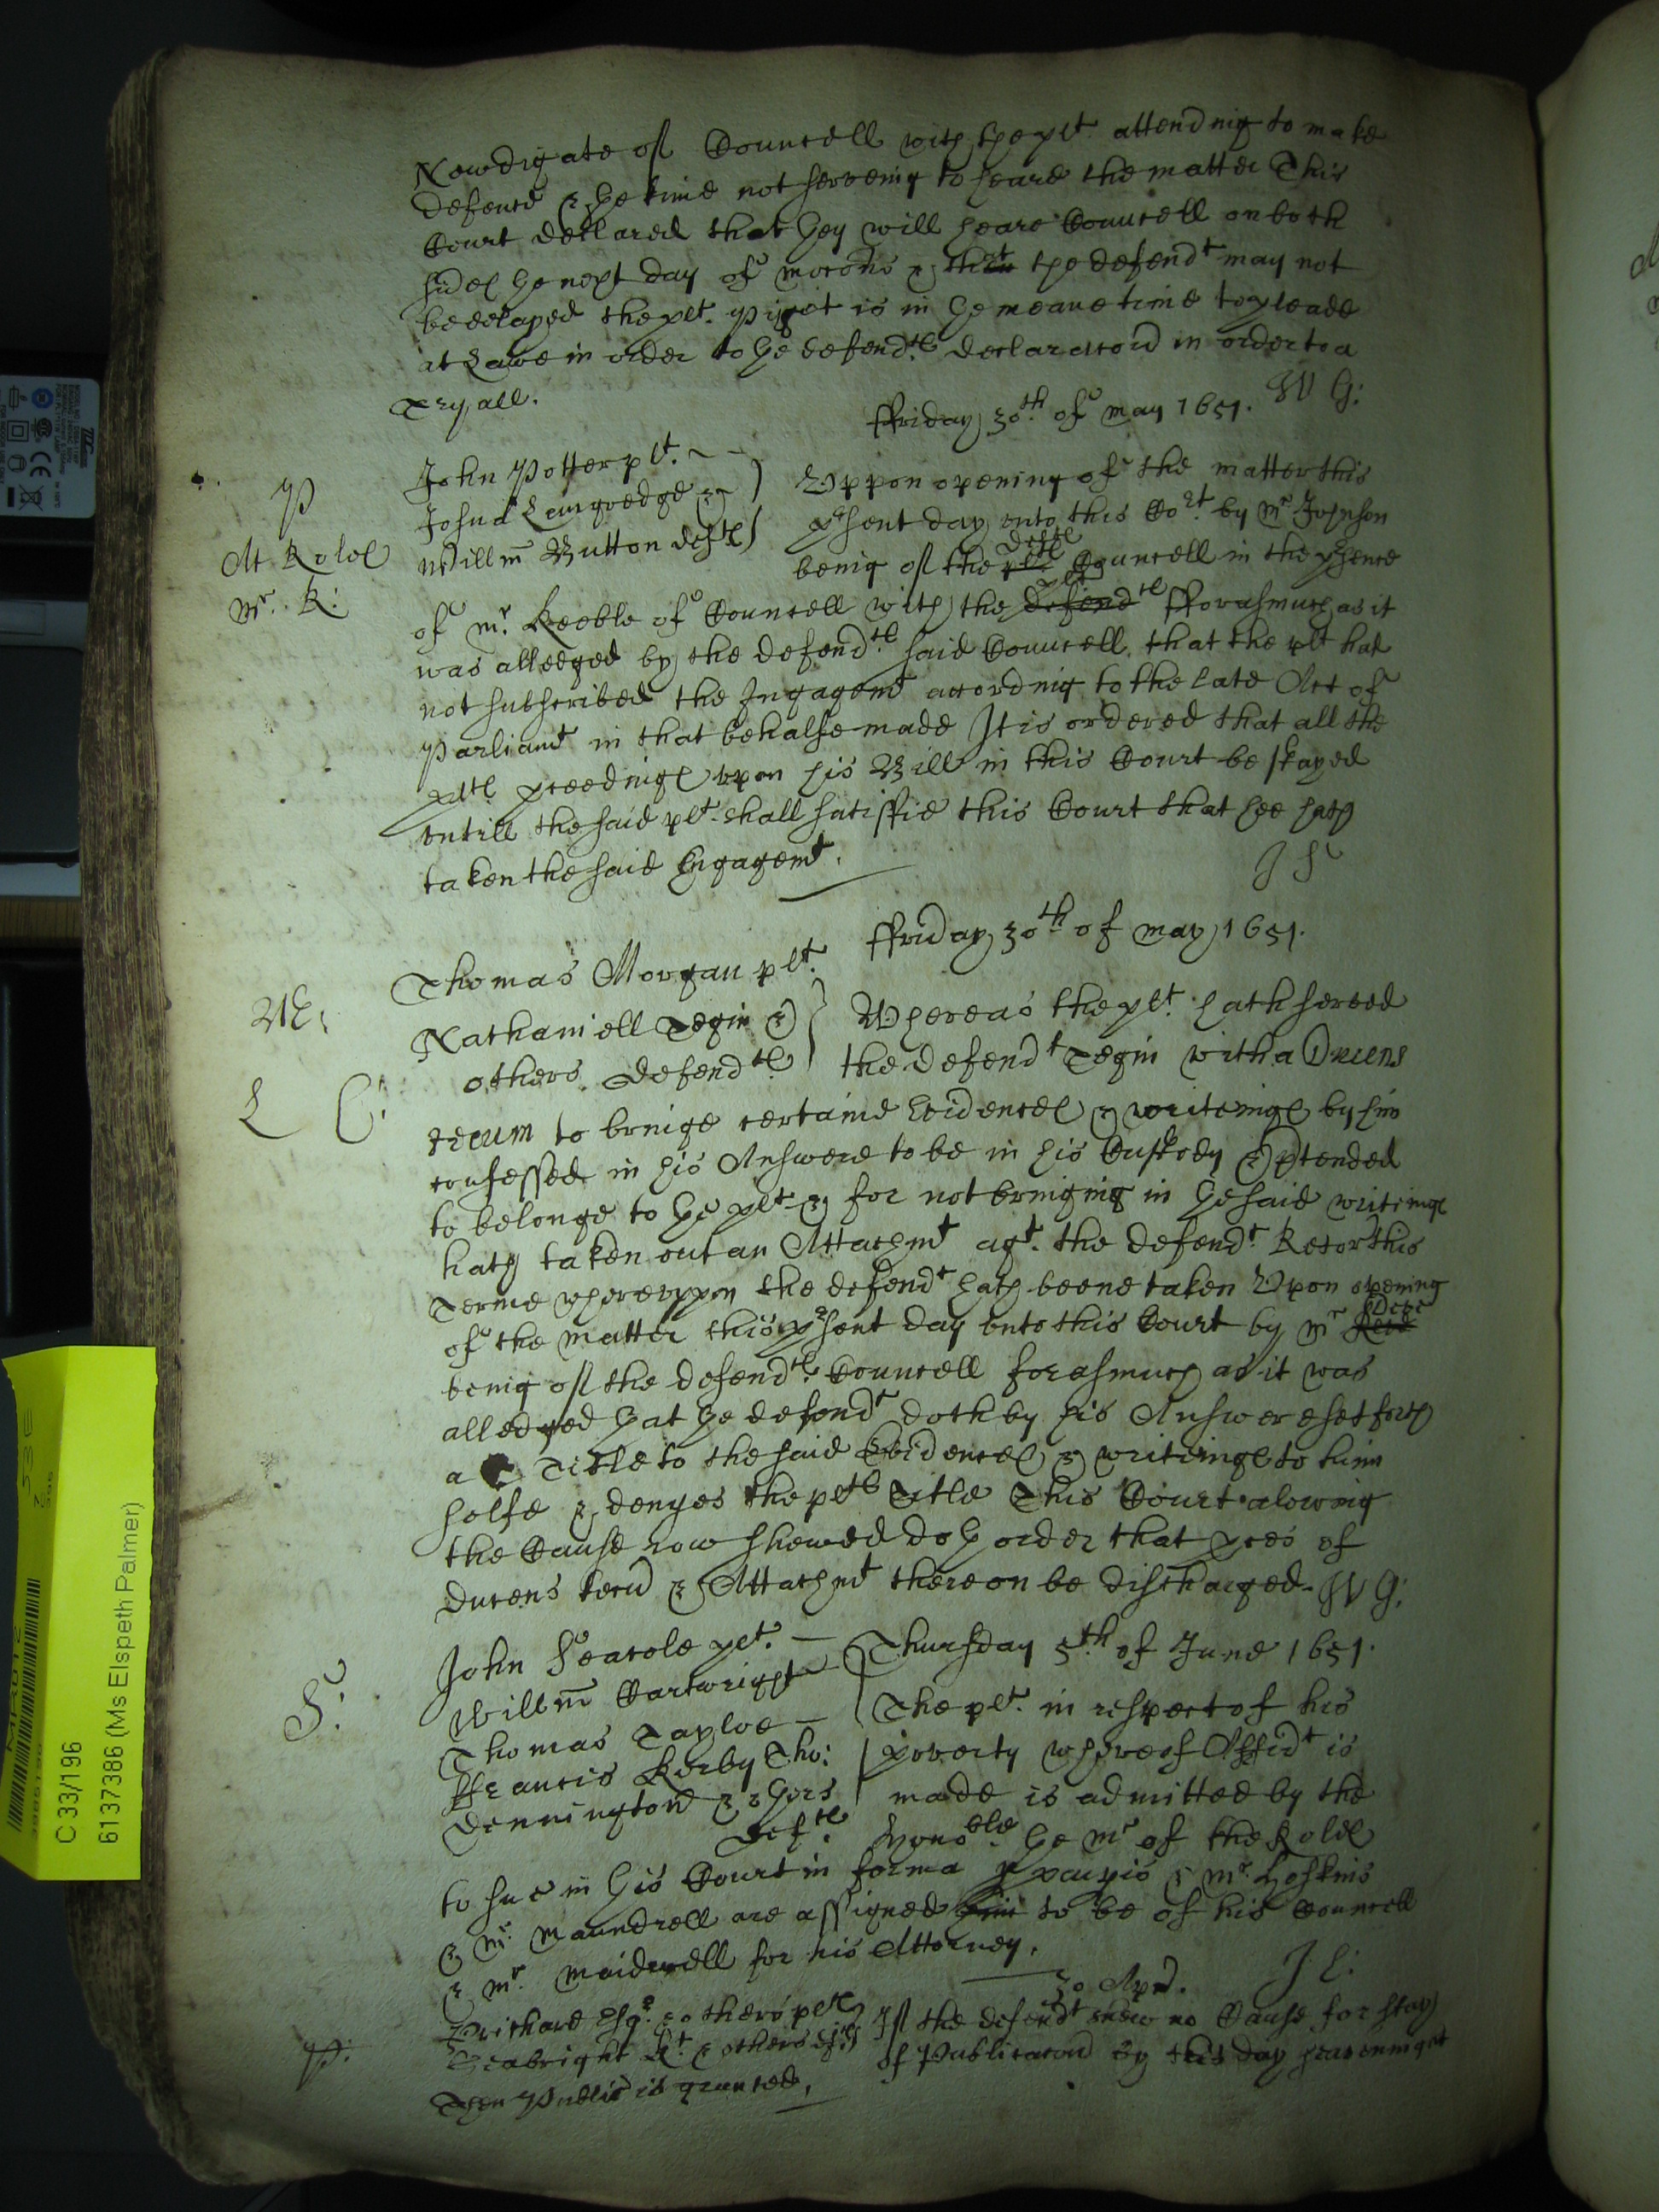 Newdigate of Councell with the plt. attending to make
defence & the time not serveing to heare the matter This
Court declared that they will heare Councell on both
sides the next day of mocons & that the defendt may not
be delayed the plt. Pigot is in the meane time to pleade
at Lawe in order to the defendts declaracon in order to a
Tryall.
W G:
ffriday 30th of may 1651.
P
At Roles
Mr. R:
John Potter plt.
Josua Langredge &
Willm Button defts
Uppon opening of the matter this
psent day unto this Cort. by Mr Johnson
being of the plts defts Councell in the psence
of Mr. Keeble of Councell with the defendts plt fforasmuch as it
was alledged by the defendts said Councell that the plt hat
not subscribed the Ingagemt according to the late Act of
Parliamt in that behalfe made It is ordered that all the
plts pceedings upon his Bill in this Court be stayed
untill the said plt. shall satisfie this Court that hee hath
taken the said Engagemt.
J S
ffriday 30th of may 1651.
L C:
Thomas Morgan plt.
Nathaniell Tegin &
others Defendts
Whereas the plt. hath served
the defendt Tegin with a Ducens
tecum to bringe certaine Evidences & writeings by him
confessed in his Answere to be in his Custody & ptended
to belonge to the plt & for not bringing in the said writeings
hath taken out an Attachmt agt. the defendt. Retor this
Terme whereuppon the defendt hath beene taken Upon opening
of the matter this psent day unto this Court by Mr
being of the defendts Councell forasmuch as it was
alledged that the defendt doth by his Answere set forth
a Title to the said Evidences & writeings to him
selfe & denyes the plts Title This Court alowing
the Cause now shewed doth order that pces of
ducens tecu & Attachmt thereon be discharged. W G:
S:
John Searole plt.
Willm Cartwright
Thomas Tayloe
ffrancis Kerby Tho:
Dennington & others
Defts.
Thursday 5th of June 1651.
The plt. in respect of his
poverty whereof Affidt is
made is admitted by the
Honoble the Mr of the Roles
to sue in this Court in forma paupis & Mr. Hoskins
& Mr. Maundrell are assigned him to be of his Councell
& Mr. Maidwell for his Attorney.
J L:
30 Apr.
P:
Prichard Esqr. & others plts
Seabright Kt. & others defts
If the defendt shew no Cause for stay
of Publicacon by this day seavennight
Then Public is graunted.